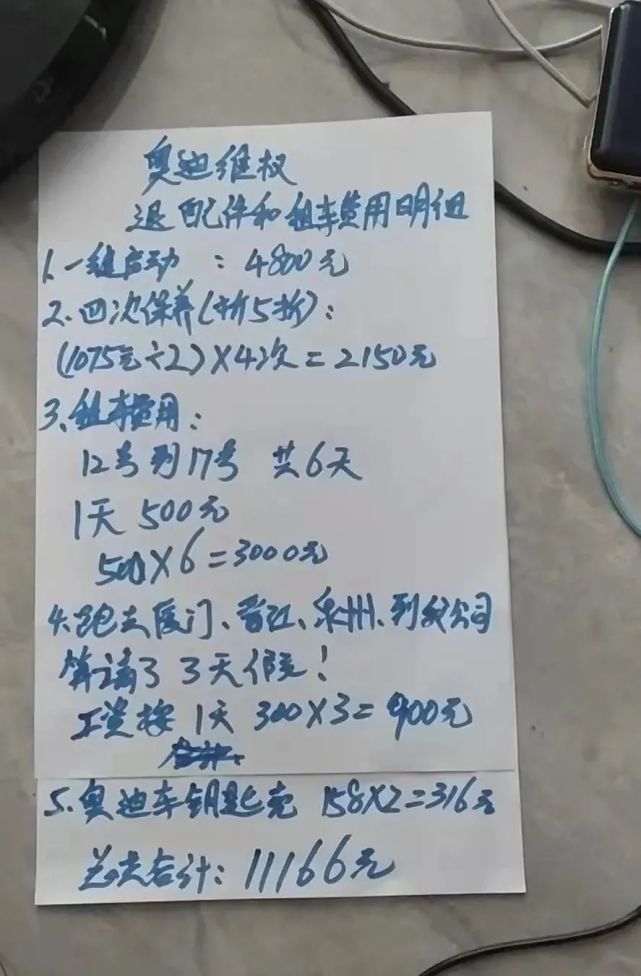 奥迪维权
退配件和租车费用明细
1、一键启动：4800元
2、四次保养(打5折)：
(1075元÷2)×4次=2150元
3、租车费用：
12号到17号 共6天
1天 500元
500×6=3000元
4、跑去厦门、晋江、泉州、到我公司
算请了3天假！
工资按1天 300×3=900元
5、奥迪车钥匙壳 158×2=316元
总共合计：11166元